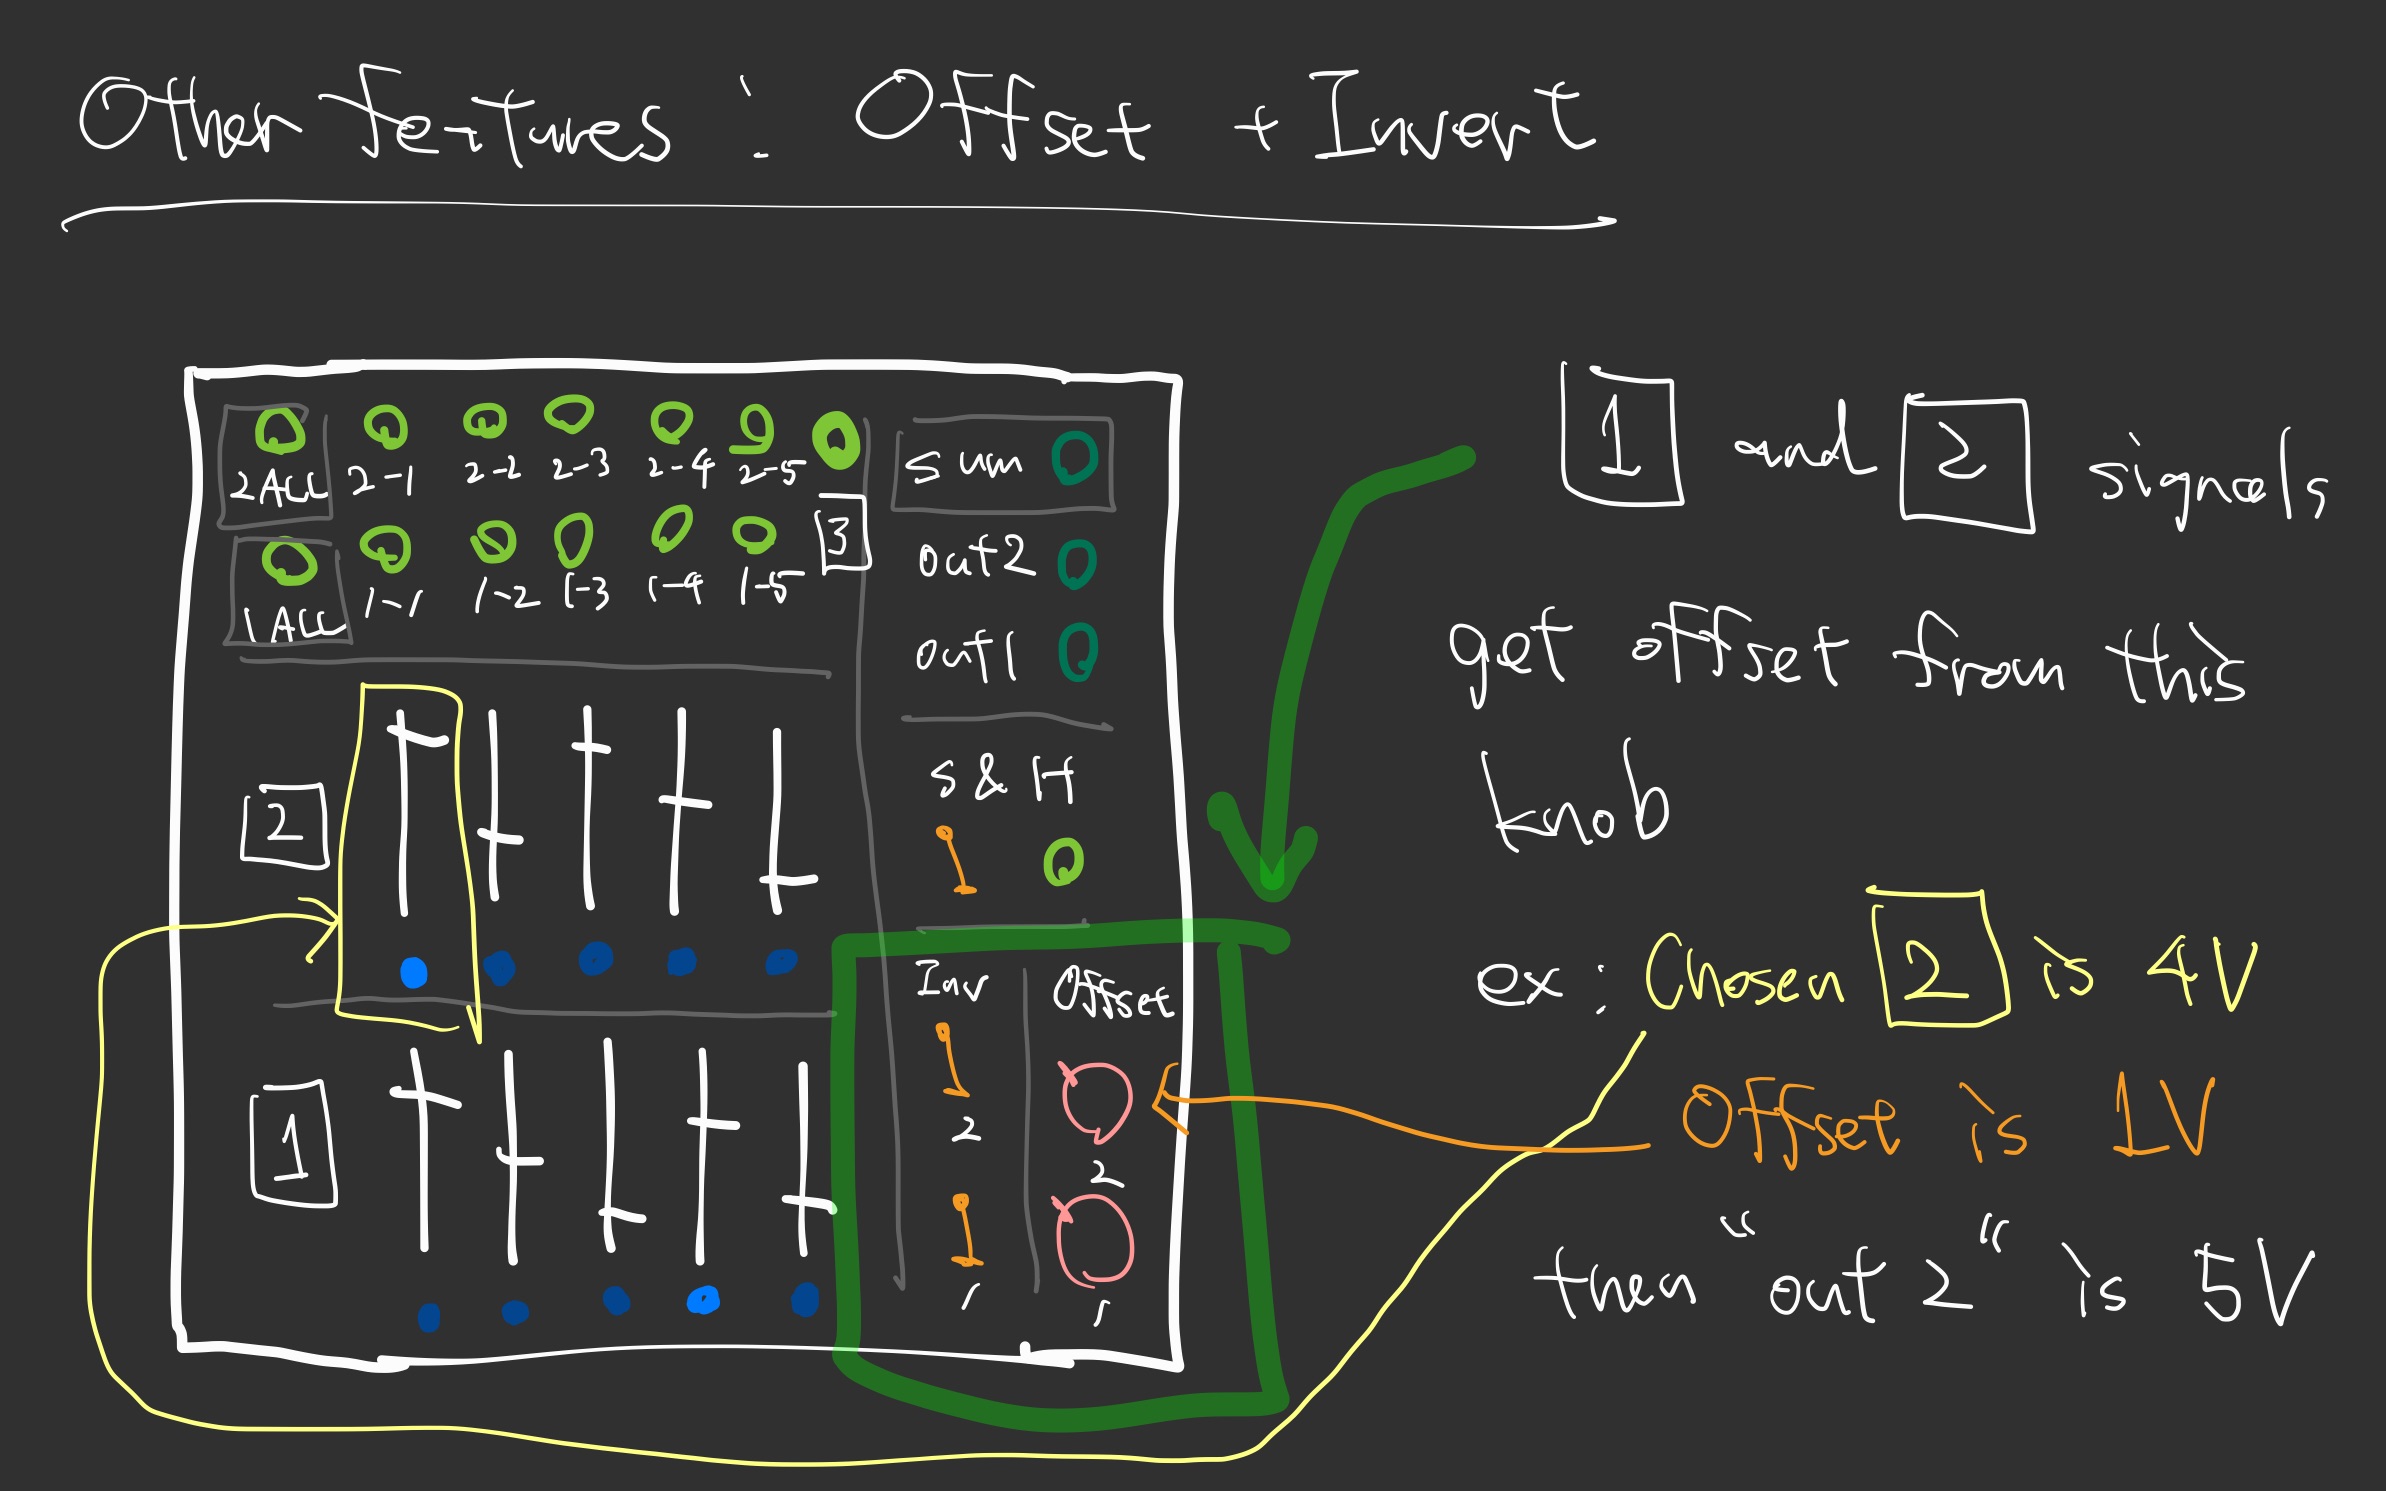 Other Features : Offset + Invert
2 ALL 2-1 2-2 2-3 2-4 2-5
3
1 ALL 1-1 1-2 1-3 1-4 1-5
Sum
out 2
out 1
S & H
2
1
Inv Offset
2 2
1 1
1 and 2 signals
get offset from this
knob
ex : Chosen 2 is 4V
Offset is 1V
then "out 2" is 5V